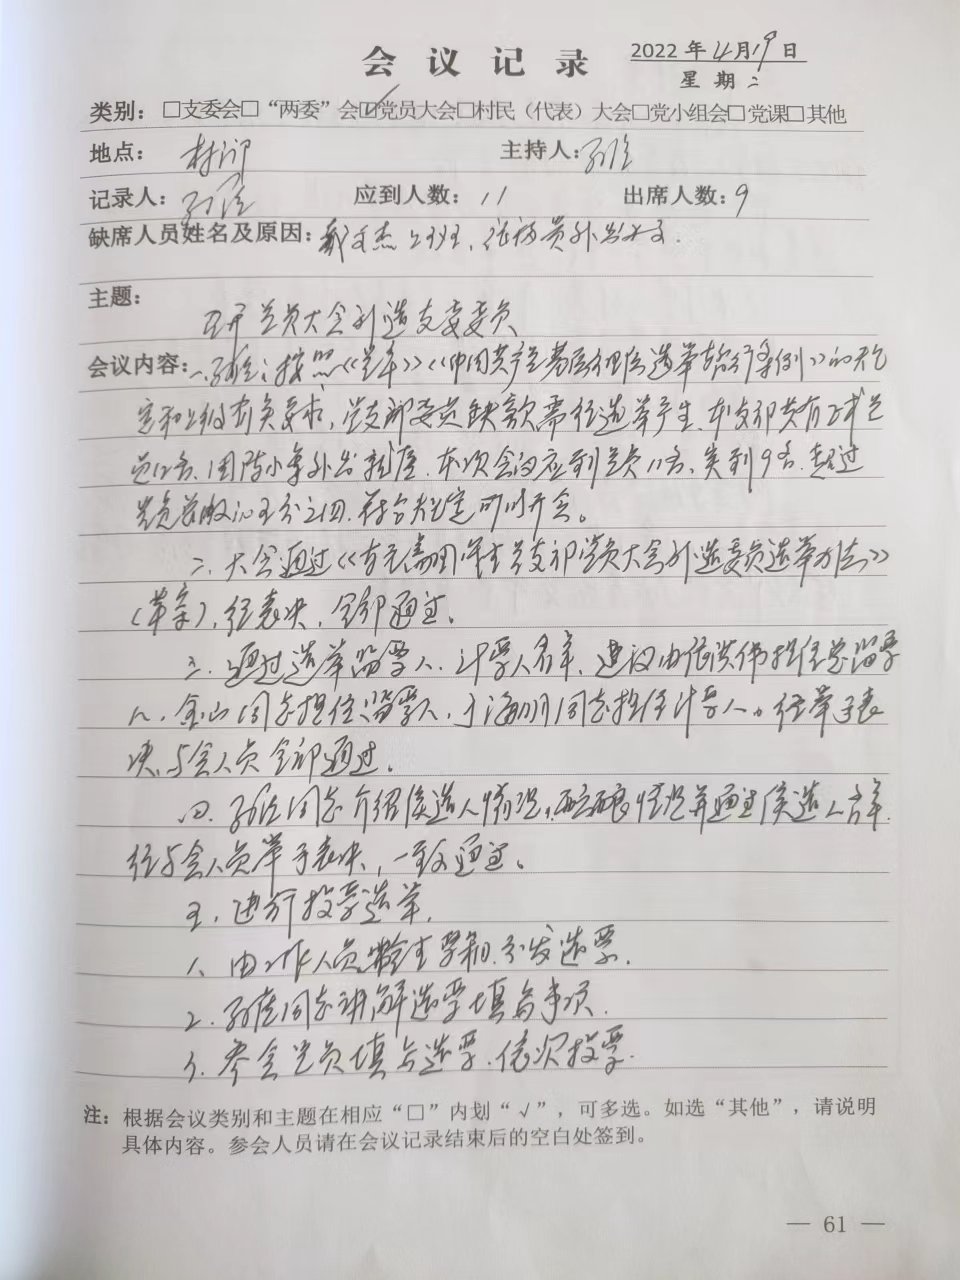 会议记录
2022年4月19日
星期二
类别：□支委会□“两委”会☑党员大会□村民（代表）大会□党小组会□党课□其他
地点：村部 主持人：
记录人： 应到人数：11 出席人数：9
缺席人员姓名及原因：杰上班，员外出
主题：
召开党员大会补选支委委员
会议内容：一、：按照《党章》《中国共产党基层组织选举暂行条例》的规
定和上级有关要求，党支部委员缺额需经选举产生，本支部共有正式党
员12名，因陈小外出，本次会议应到党员11名，实到9名，超过
党员总数的五分之四，符合规定可以开会。
二、大会通过《党支部党员大会补选委员选举办法》
（草案），经表决，全部通过。
三、通过选举监票人、计票人名单，建议由洪伟担任总监票
人，金山同志担任监票人，于海川同志担任计票人。经举手表
决，与会人员全部通过。
四、同志介绍候选人情况，酝酿情况并通过候选人名单，
经与会人员举手表决，一致通过。
五、进行投票选举，
1、由工作人员票箱，分发选票，
2、同志讲解选票填写事项，
3、参会党员填写选票，依次投票
注：根据会议类别和主题在相应“□”内划“√”，可多选。如选“其他”，请说明
具体内容。参会人员请在会议记录结束后的空白处签到。
— 61 —